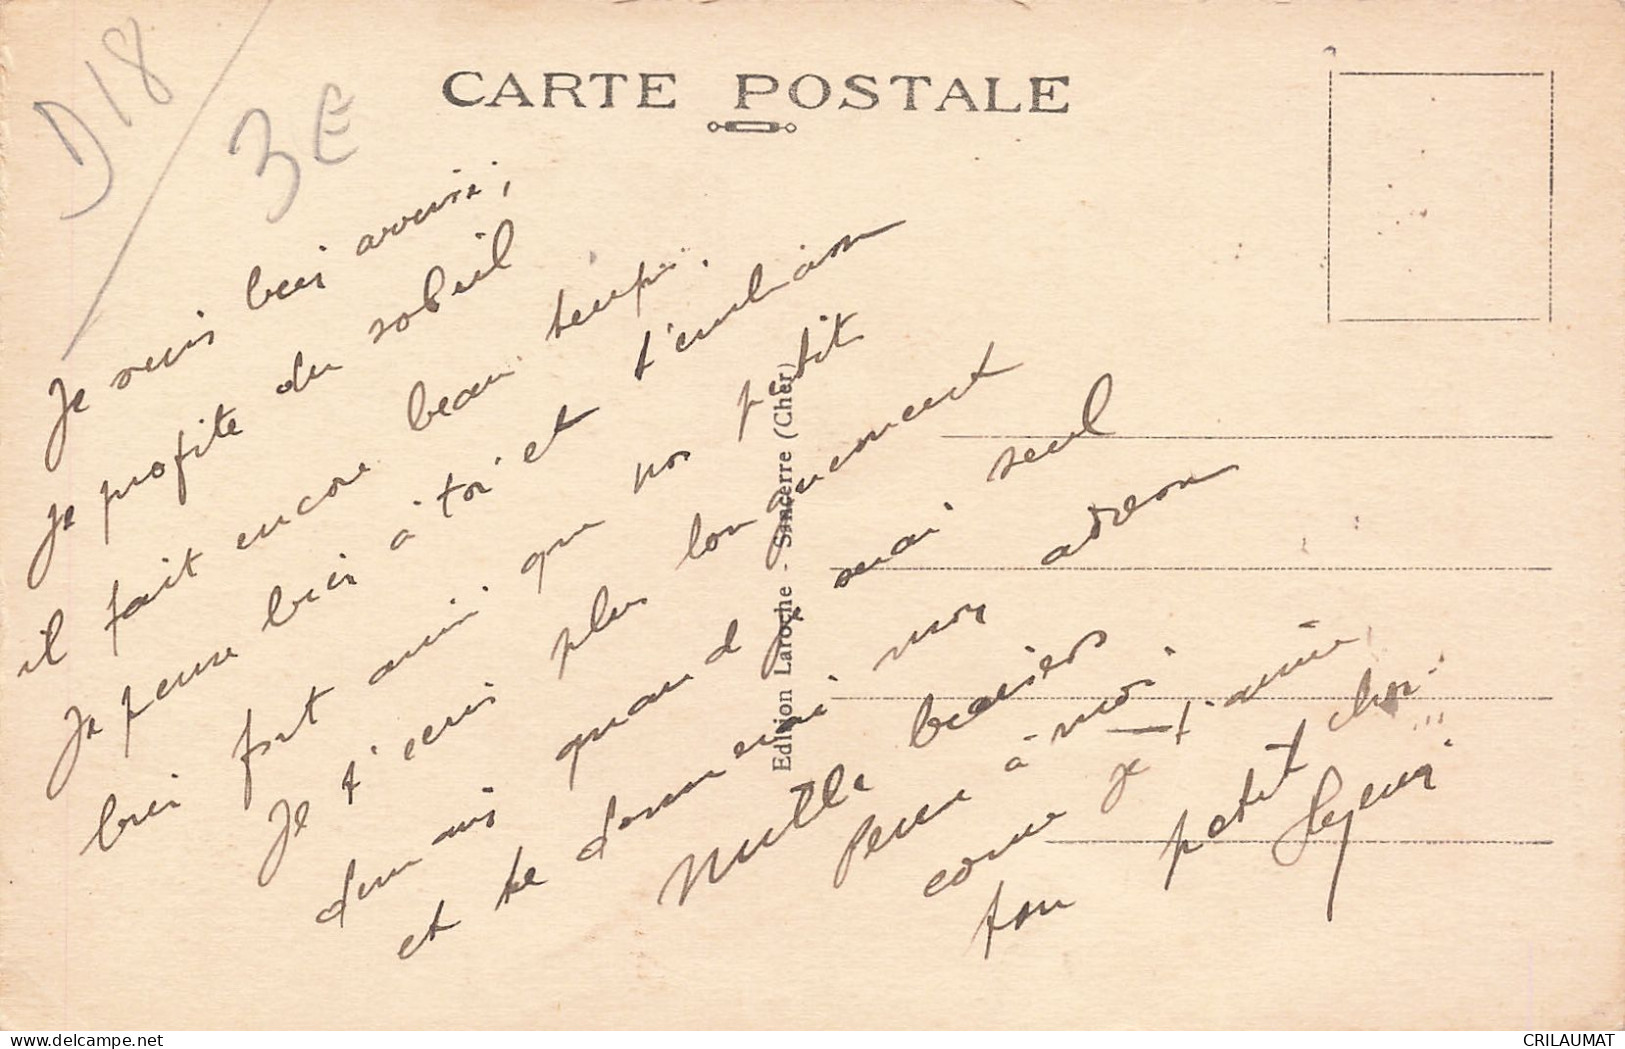 D18
3E
CARTE POSTALE
Je suis bien arrivé,
je profite du soleil
il fait encore beau temps.
Je pense bien à toi et t'embrasse
bien fort ainsi que nos petits
Je t'écris plus longuement
demain quand je serai seul
et te donnerai mon adresse
Mille baisers
Pense à moi
comme je t'aime
ton petit
Edition Laroche - Sancerre (Cher)
delcampe.net
CRILAUMAT